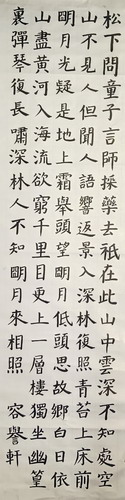 松下問童子言師採藥去祇在此山中雲深不知處空
山不見人但聞人語響返景入深林復照青苔上床前
明月光疑是地上霜舉頭望明月低頭思故鄉白日依
山盡黃河入海流欲窮千里目更上一層樓獨坐幽篁
裏彈琴復長嘯深林人不知明月來相照 容譽軒